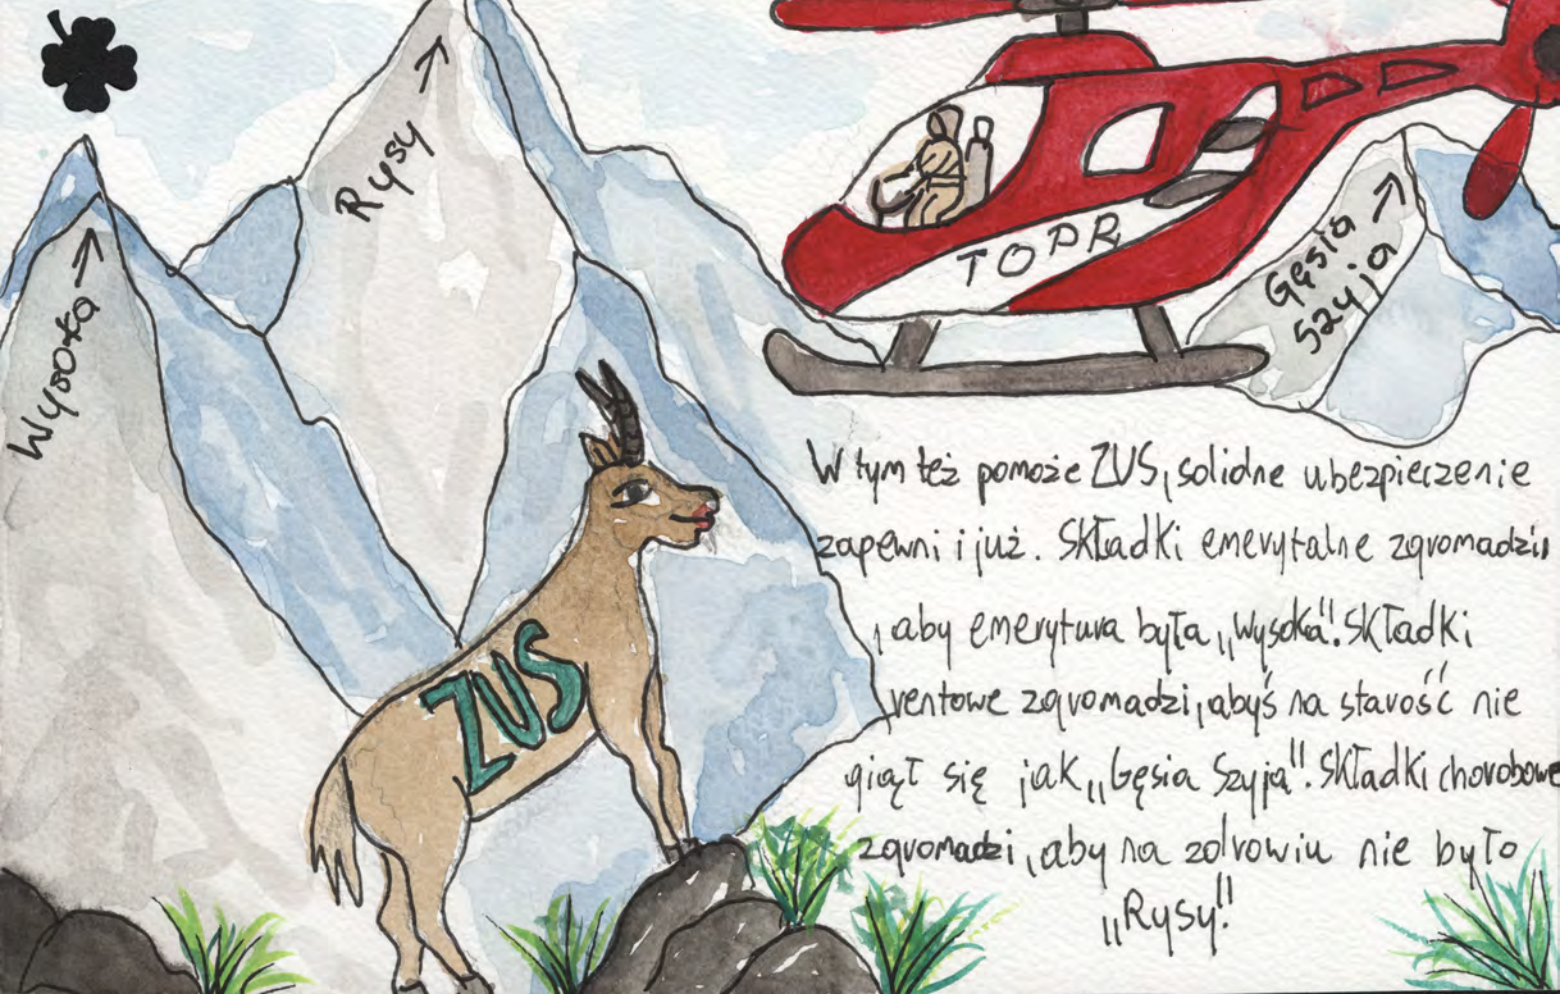 Rysy
Wysoka
TOPR
Gęsia
Szyja
ZUS
W tym też pomoże ZUS, solidne ubezpieczenie
zapewni i już. Składki emerytalne zgromadzi
, aby emerytura była „Wysoka". Składki
rentowe zgromadzi, abyś na starość nie
giął się jak „Gęsia Szyja". Składki chorobowe
zgromadzi, aby na zdrowiu nie było
„Rysy".